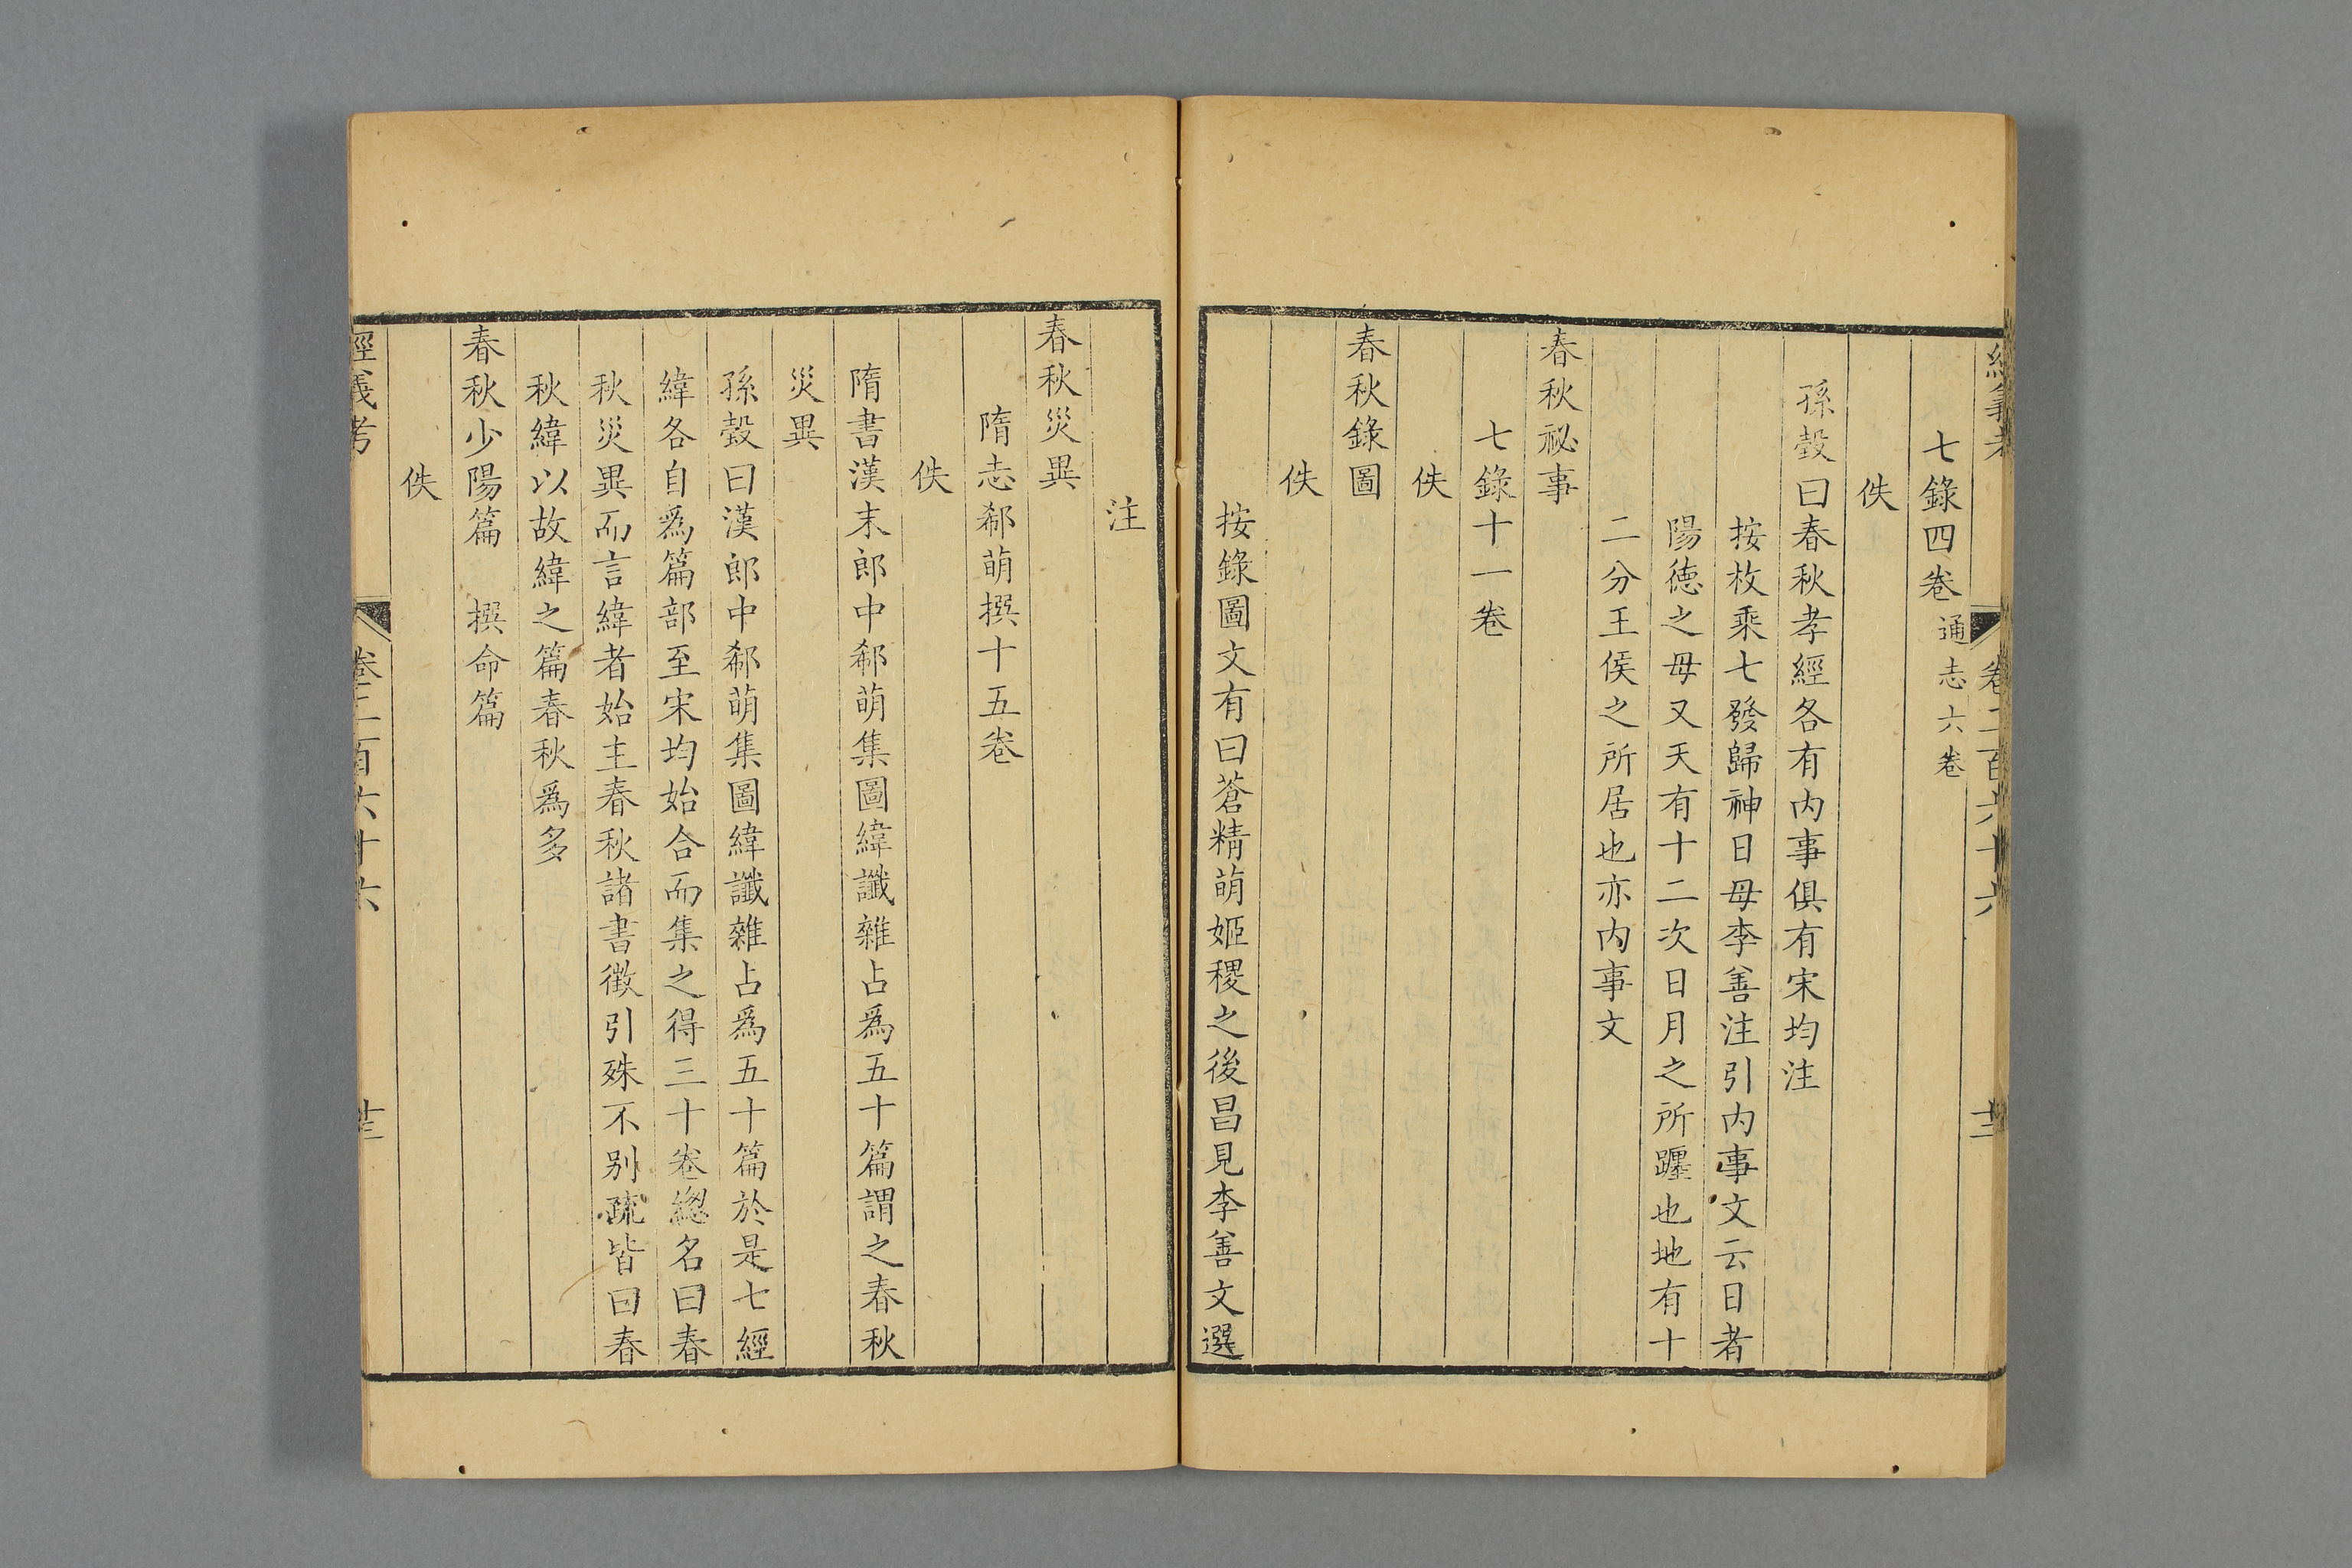 經義考
卷二百六十六
七錄四卷通志六卷
佚
孫瑴曰春秋孝經各有內事俱有宋均注
按枚乘七發歸神日母李善注引內事文云日者
陽德之母又天有十二次日月之所躔也地有十
二分王侯之所居也亦內事文
春秋祕事
七錄十一卷
佚
春秋錄圖
佚
按錄圖文有曰蒼精萌姬稷之後昌見李善文選
注
春秋災異
隋志郗萌撰十五卷
佚
隋書漢末郎中郗萌集圖緯讖雜占爲五十篇謂之春秋
災異
孫瑴曰漢郎中郗萌集圖緯讖雜占爲五十篇於是七經
緯各自爲篇部至宋均始合而集之得三十卷緫名曰春
秋災異而言緯者始主春秋諸書徵引殊不别疏皆曰春
秋緯以故緯之篇春秋爲多
春秋少陽篇　撰命篇
佚
經義考
卷二百六十六